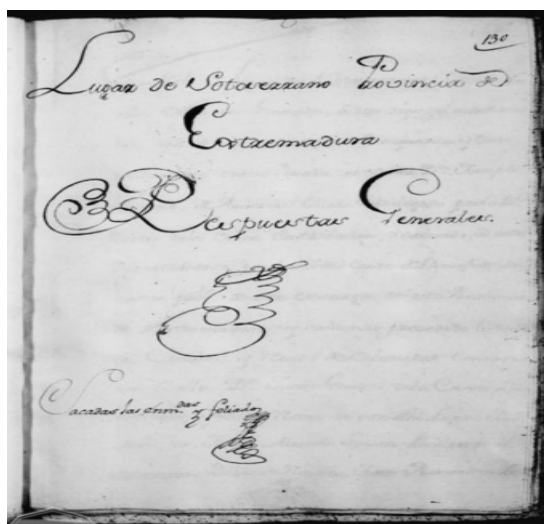 130
Lugar de Sotoserrano Provincia de
Extremadura
Respuestas Generales.
Sacadas las enm.das y foliado